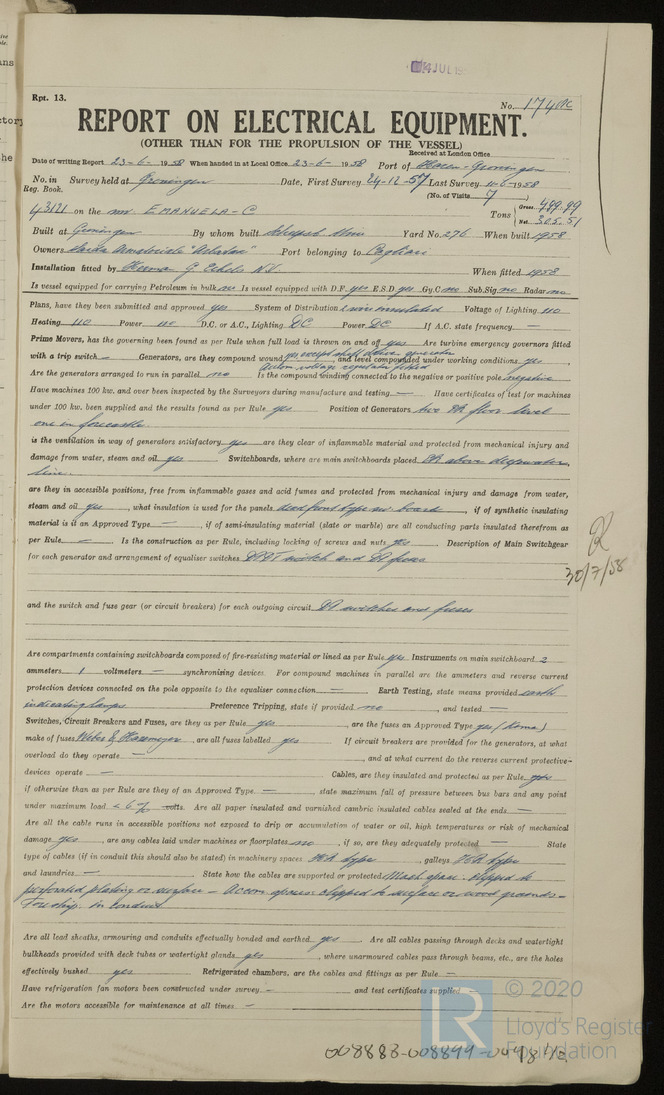 14 JUL 19
Rpt. 13.
No. 1740c
REPORT ON ELECTRICAL EQUIPMENT.
(OTHER THAN FOR THE PROPULSION OF THE VESSEL)
Received at London Office
Date of writing Report 23-6-1958 When handed in at Local Office 23-6-1958 Port of Groningen
No. in Reg. Book. Survey held at Groningen Date, First Survey 24-12-57 Last Survey 11-6-1958
(No. of Visits 7)
43121 on the mv. EMANUELA-C Tons Gross 499.99 Net 305.51
Built at Groningen By whom built Yard No. 276 When built 1958
Owners Port belonging to Cagliari
Installation fitted by Herman G. Eekels N.V. When fitted 1958
Is vessel equipped for carrying Petroleum in bulk no Is vessel equipped with D.F. yes E.S.D. yes Gy.C no Sub.Sig no Radar no
Plans, have they been submitted and approved yes System of Distribution 2 wire insulated Voltage of Lighting 110
Heating 110 Power 110 D.C. or A.C., Lighting DC Power DC If A.C. state frequency —
Prime Movers, has the governing been found as per Rule when full load is thrown on and off yes Are turbine emergency governors fitted
with a trip switch — Generators, are they compound wound yes except shaft driven generator, and level compounded under working conditions yes
voltage regulator fitted
Are the generators arranged to run in parallel no Is the compound winding connected to the negative or positive pole negative
Have machines 100 kw. and over been inspected by the Surveyors during manufacture and testing — Have certificates of test for machines
under 100 kw. been supplied and the results found as per Rule yes Position of Generators two ER floor level
one in forecastle
is the ventilation in way of generators satisfactory yes are they clear of inflammable material and protected from mechanical injury and
damage from water, steam and oil yes Switchboards, where are main switchboards placed ER above deepwater
line
are they in accessible positions, free from inflammable gases and acid fumes and protected from mechanical injury and damage from water,
steam and oil yes, what insulation is used for the panels dead front type sw. board, if of synthetic insulating
material is it an Approved Type —, if of semi-insulating material (slate or marble) are all conducting parts insulated therefrom as
per Rule — Is the construction as per Rule, including locking of screws and nuts yes Description of Main Switchgear
for each generator and arrangement of equaliser switches DPDT switch and DP fuses
and the switch and fuse gear (or circuit breakers) for each outgoing circuit DP switches and fuses
R
30/7/58
Are compartments containing switchboards composed of fire-resisting material or lined as per Rule yes Instruments on main switchboard 2
ammeters 1 voltmeters — synchronizing devices. For compound machines in parallel are the ammeters and reverse current
protection devices connected on the pole opposite to the equaliser connection — Earth Testing, state means provided earth
indicating lamps Preference Tripping, state if provided no, and tested —
Switches, Circuit Breakers and Fuses, are they as per Rule yes, are the fuses an Approved Type yes (Kema)
make of fuses Weber & Hazemeyer, are all fuses labelled yes If circuit breakers are provided for the generators, at what
overload do they operate —, and at what current do the reverse current protective
devices operate — Cables, are they insulated and protected as per Rule yes
if otherwise than as per Rule are they of an Approved Type —, state maximum fall of pressure between bus bars and any point
under maximum load < 6% volts. Are all paper insulated and varnished cambric insulated cables sealed at the ends —
Are all the cable runs in accessible positions not exposed to drip or accumulation of water or oil, high temperatures or risk of mechanical
damage yes, are any cables laid under machines or floorplates no, if so, are they adequately protected — State
type of cables (if in conduit this should also be stated) in machinery spaces type, galleys type
and laundries — State how the cables are supported or protected Mach. space: clipped to
perforated plating or surface — Accom. spaces: clipped to surface or wood grounds —
Foreship: in conduit
Are all lead sheaths, armouring and conduits effectually bonded and earthed yes Are all cables passing through decks and watertight
bulkheads provided with deck tubes or watertight glands yes, where unarmoured cables pass through beams, etc., are the holes
effectively bushed yes Refrigerated chambers, are the cables and fittings as per Rule —
Have refrigeration fan motors been constructed under survey — and test certificates supplied
Are the motors accessible for maintenance at all times —
© 2020
Lloyd's Register
Foundation
008883-008899-0448